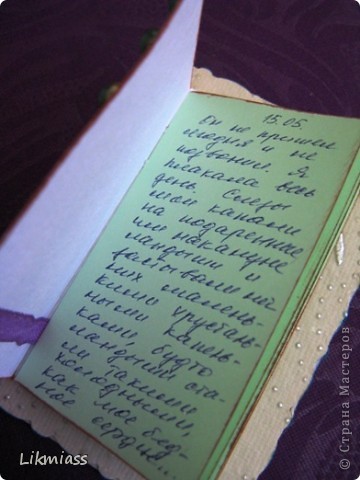 15.05.
Вы не пришли
сегодня и не
позвонили. Я
плакала весь
день. Слёзы
мои капали
на подаренные
им накануне
ландыши и
застывали на
них малень-
кими хрусталь-
ными капель-
ками, будто
ландыши ста-
ли такими
холодными,
как моё бед-
ное сердце...
Likmiass
© Страна Мастеров